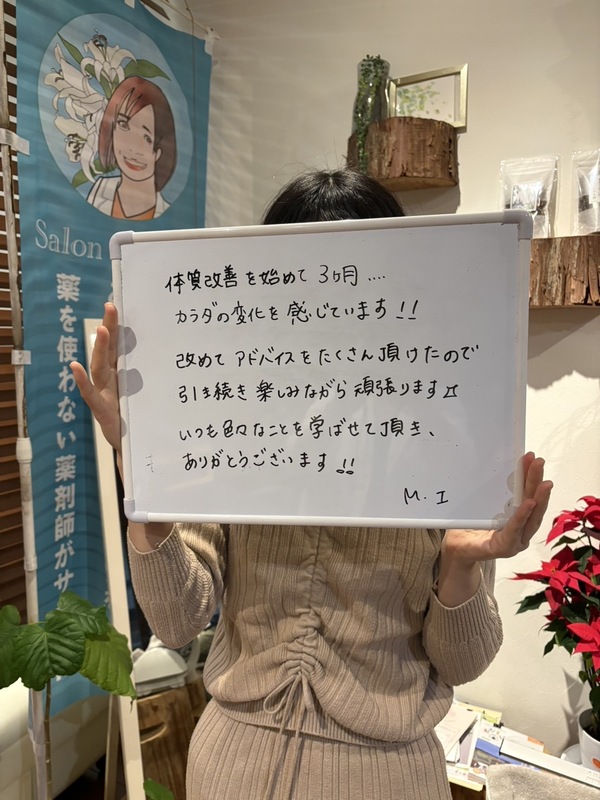 Salon
薬を使わない薬剤師がサ
体質改善を始めて 3ヶ月....
カラダの変化を感じています!!
改めて アドバイスをたくさん頂けたので
引き続き楽しみながら頑張ります
いつも色々なことを学ばせて頂き、
ありがとうございます!!
M.I